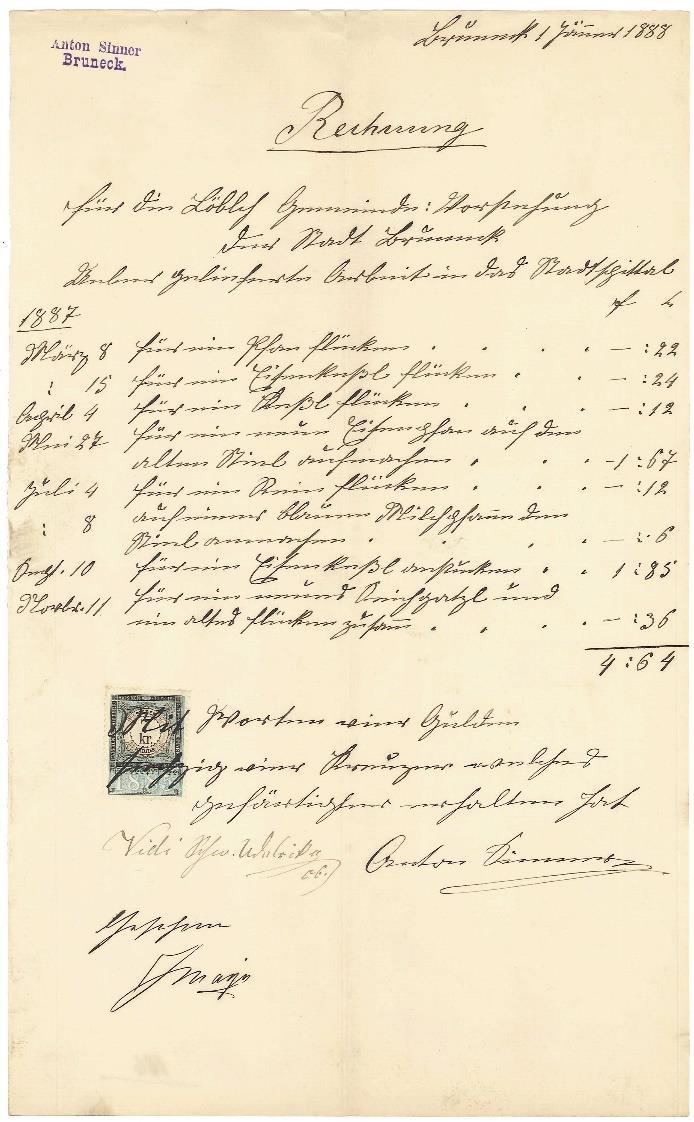 Anton Sinner
Bruneck.
Bruneck 1 Jänner 1888
Rechnung
für die Löblch Gemeinde: Vorstehung
der Stadt Bruneck
Ueber gelieferte Arbeit in das Stadtspittal
1887 f
März 8 für ein Pfan flücken - : 22
: 15 für ein Eisenkeßl flücken - : 24
April 4 für ein Keßl flücken - : 12
Mei 27 für ein neue Eisenpfan auf den
alten Stiel aufmachen 1 : 67
Juli 4 für ein Rein flücken - : 12
: 8 auf einer blauen Milchpfanne den
Stiel anmachen - : 6
10 für ein Eisenkeßl anstucken 1 : 85
Novbr. 11 für ein neues und
ein altes flücken zusam - : 36
4 : 64
Mit Worten vier Gulden
sechzig vier Kreuzer welches
gefärtigter erhalten hat
kr.
Vidi Schw.
Anton Sinner
Gesehen
Mayr